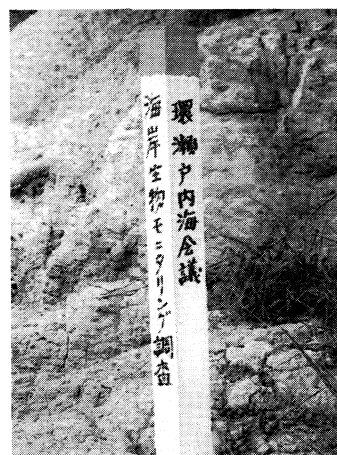 環瀬戸内海会議
海岸生物モニタリング調査